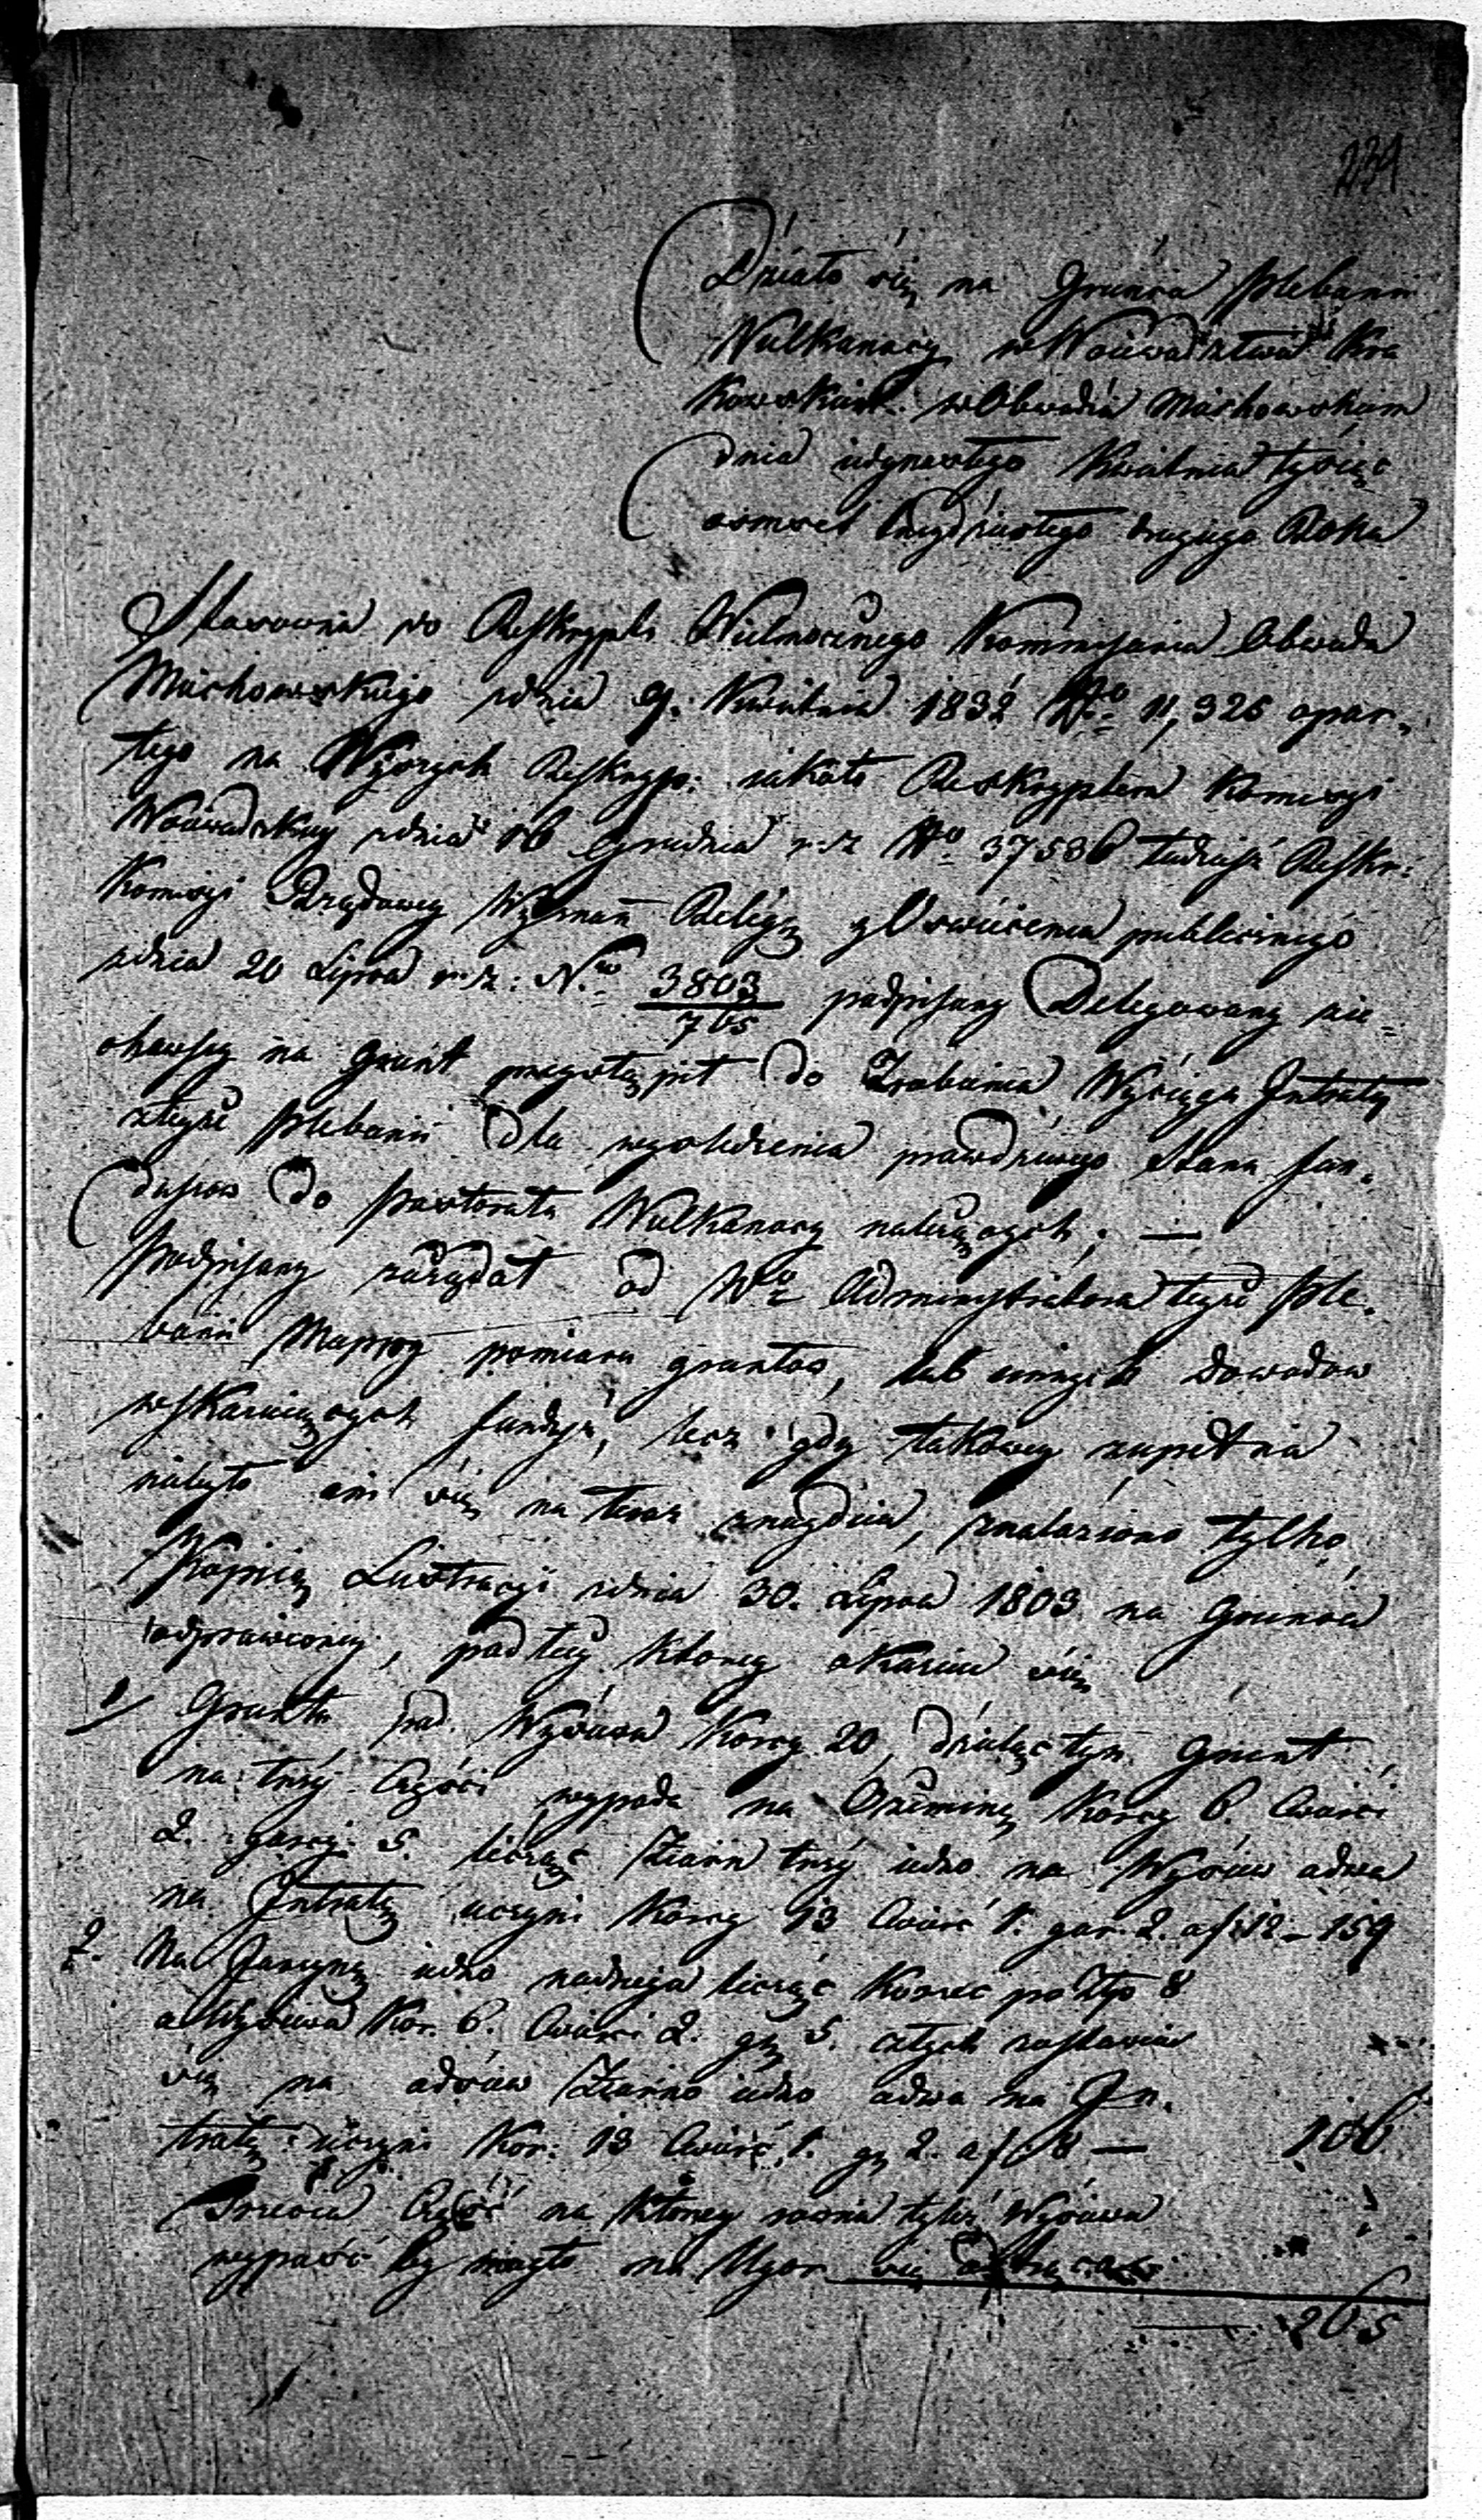 234
Działo się na Gruncie Plebanii
Nulkanocy w Woiewództwie Kra
kowskiem w Obwodzie Miechowskim
dnia iedynastego Kwietnia tysiąc
osmset trzydziestego drugiego Roku
Stosownie do Reskryptu Wielmożnego Kommissarza Obwodu
Miechowskiego zdnia 9. Kwietnia 1832 No 11,326 opar„
tego na Wyższych Reskryp: iakoto Reskryptem Komissyi
Woiewódzkiey zdnia 16 Grudnia r. z No 37586 tudzież Reskr:
Komissyi Rządowey Wyznań Religy y Oswiecenia publicznego
zdnia 20 Lipca r. z: No 3803/765 podpisany Delegowany zie=
chawszy na Grunt przystąpił do Zrobienia Wyciągu Intraty
zteyże Plebanii dla wysledzenia prawdziwego Stanu fun„
duszow do pastoratu Wulkanocy należących; —
Podpisany zarządał od Wo Administratora teyże Ple„
banii Mappy pomiaru gruntow, lub innych dowodow
wskazuiących fundusz, lecz gdy takowey zupełnie
niebyło ani się na teraz znayduie, znaleziono tylko
Kopią Lustracyi zdnia 30. Lipca 1803 na Gruncie
odprawioney, podług ktorey okazuie się
1/ Gruntu pod Wysiew Korcy 20, dzieląc tyn Grunt
na trzy Części wypada na Oziminę Korcy 6. Cwierci
2. garcy 5. licząc Ziarn trzy iedno na Wysiew adwa
na Intratę uczyni Korcy 13 Cwierć 1. gar. 2. a f 12 — 159
2. Na Jarzynę iedno nadrugie licząc Korzec po Złp 8
a Wysiewu Kor. 6. Cwierci 2. gy 5. cztych zostawia
się na odsiew Ziarno iedno adwa na In„
tratę uczyni Kor: 13 Cwierć 1. gy 2. a f 8 — 106
Trzecia Część na ktorey rownie tyleż Wysiewu
wypaść by mogło na Ugor się
265